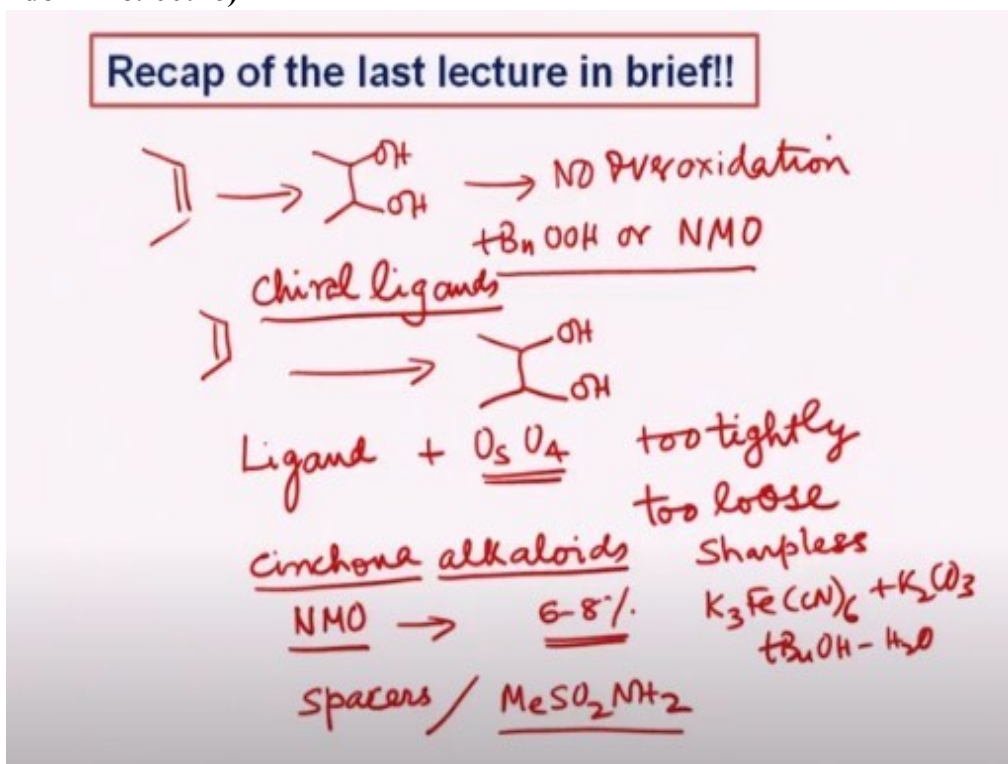 Recap of the last lecture in brief!!
OH
OH
NO Overoxidation
tBuOOH or NMO
Chiral ligands
OH
OH
Ligand + OsO4 too tightly
too loose
Cinchona alkaloids Sharpless
NMO → 6-8% K3Fe(CN)6 + K2CO3
tBuOH - H2O
spacers / MeSO2NH2